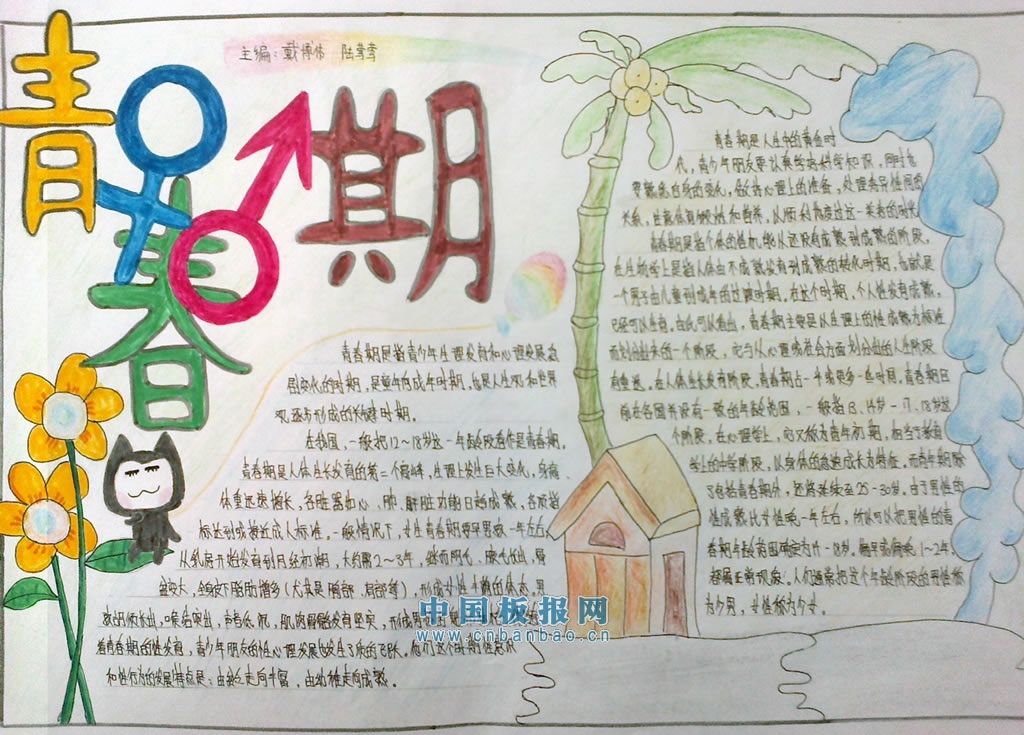 青春期
主编：戴博伟 陆莺莺
青春期是指青少年生理发育和心理发展急
剧变化的时期，是童年向成年时期，也是人生观和世界
观逐步形成的关键时期。
在我国，一般把12～18岁这一年龄段看作是青春期。
青春期是人体生长发育的第二个高峰，生理上发生巨大变化，身高、
体重迅速增长，各脏器如心、肺、肝脏功能日趋成熟，各项指
标达到或接近成人标准。一般情况下，女生青春期要早男孩一年左右，
从乳房开始发育到月经初潮，大约需2～3年，继而阴毛、腋毛长出，骨
盆变大，全身皮下脂肪增多（尤其是胸部、肩部等），形成女性丰满的体态。男
孩胡须长出，喉结突出，声音低沉，肌肉骨骼发育坚实，形成男
着青春期的性发育，青少年朋友的性心理发展也发生了质的飞跃。他们这个时期性意识
和性行为的发展特点是：由孤立走向丰富，由幼稚走向成熟。
青春期是人生中的黄金时
代，青少年朋友要以乘学高科学知识，同时也
要熟悉自身的变化，做好心理上的准备，处理青异性间的
关系，注意体育锻炼和营养，从顺利度过这一美青的时光
青春期是指个体的性机能从还没有成熟到成熟的阶段，
在生物学上是指人体由不成熟发育到成熟的转化时期，也就是
一个男子由儿童到成年的过渡时期。在这个时期，个人性发育成熟，
已经可以生育，由此可以看出，青春期主要是从生理上的性成熟为标准
而划分出来的一个阶段，它与从心理或社会方面划分出的人生阶段
有重迭。在人体生长发育阶段，青春期占一半或更多一些时间。青春期目
前在各国并没有一致的年龄范围，一般指13、14岁—17、18岁这
个阶段，在心理学上，它又称为青年初期，相当于教育
学上的中学阶段，以身体的急速成长为特征。而青年期除
了包括青春期外，还将延续至25-30岁。由于男性的
性成熟比女性晚一年左右，所以可以把男性的青
春期年龄范围确定为14-18岁，偏早或偏晚1～2年，
都属正常现象。人们通常把这个年龄阶段的男性称
为少男，女性称为少女。
中国板报网
www.cnbanbao.cn